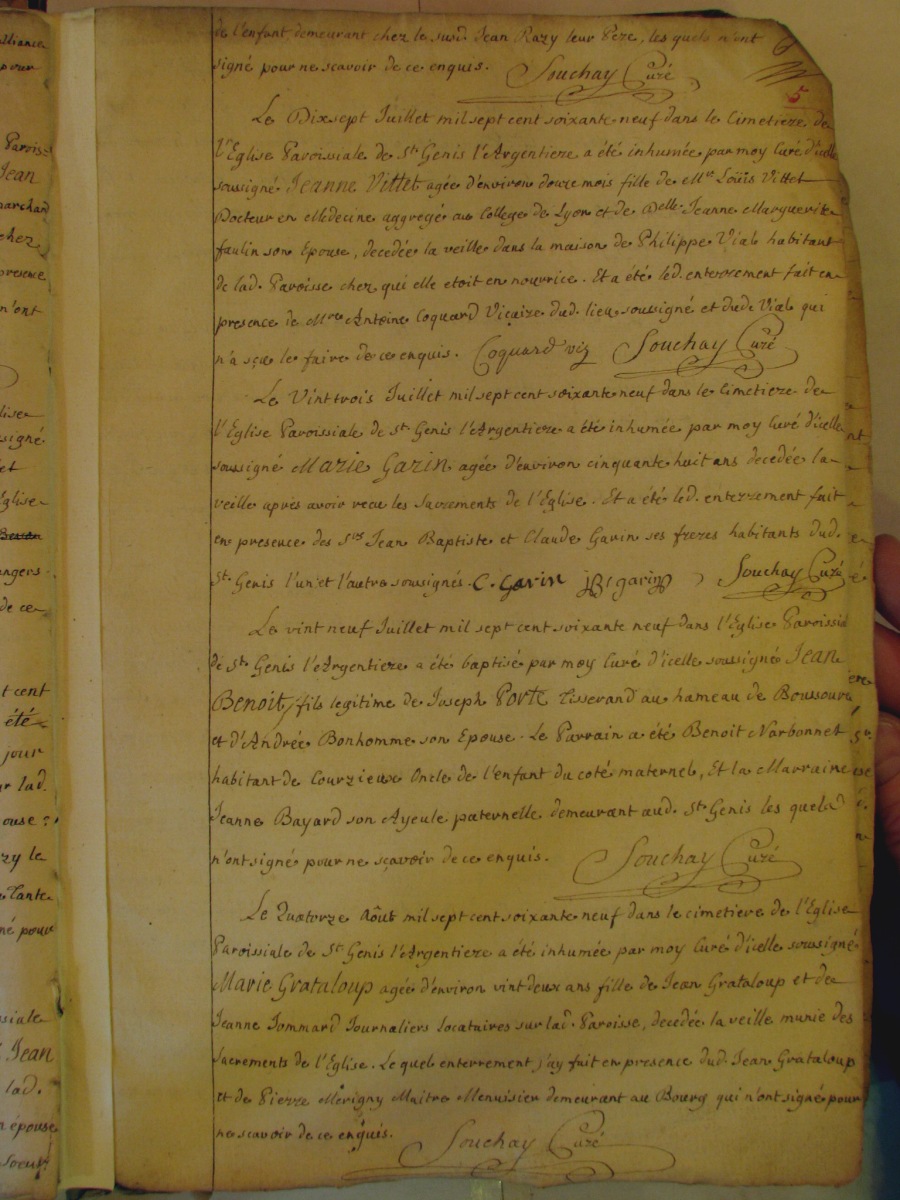 de l'enfant demeurant chez le susd. Jean Razy leur Pere, les quels n'ont
signé pour ne scavoir de ce enquis. Souchay Curé
5
Le Dixsept Juillet mil sept cent soixante neuf dans le Cimetiere de
l'Eglise Paroissiale de St Genis l'Argentiere a été inhumée par moy Curé d'icelle
soussigné Jeanne Vittet agée d'environ douze mois fille de Mre Loüis Vittet
Docteur en Medecine aggregé au College de Lyon et de Delle Jeanne Marguerite
faulin son Epouse, decedée la veille dans la maison de Philippe Vial habitant
de lad. Paroisse chez qui elle etoit en nourrice. Et a été led. enterrement fait en
presence de Mre Antoine Coquard Vicaire dud. lieu soussigné et dud. Vial qui
n'a sçu le faire de ce enquis. Coquard vic Souchay Curé
Le Vint trois Juillet mil sept cent soixante neuf dans le Cimetiere de
l'Eglise Paroissiale de St Genis l'Argentiere a été inhumée par moy Curé d'icelle
soussigné Marie Garin agée d'environ cinquante huit ans decedée la
veille après avoir recu les Sacrements de l'Eglise. Et a été led. enterrement fait
en presence des Srs Jean Baptiste et Claude Garin ses freres habitants dud.
St. Genis l'un et l'autre soussignés. C. Garin JB garin Souchay Curé
Le vint neuf Juillet mil sept cent soixante neuf dans l'Eglise Paroissial
de St Genis l'Argentiere a été baptisé par moy Curé d'icelle soussigné Jean
Benoit fils legitime de Joseph Porte Tisserand au hameau de
et d'Andrée Bonhomme son Epouse. Le Parrain a été Benoit Narbonnet
habitant de Courzieux Oncle de l'enfant du coté maternel, Et la Marraine
Jeanne Bayard son Ayeule paternelle demeurant aud. St Genis les quels
n'ont signé pour ne sçavoir de ce enquis. Souchay Curé
Le Quatorze Aôut mil sept cent soixante neuf dans le cimetiere de l'Eglise
Paroissiale de St Genis l'Argentiere a été inhumée par moy Curé d'icelle soussigné
Marie Grataloup agée d'environ vint deux ans fille de Jean Grataloup et de
Jeanne Jommard Journaliers locataires sur lad. Paroisse, decedée la veille munie des
Sacrements de l'Eglise. Le quel enterrement j'ay fait en presence dud. Jean Grataloup
et de Pierre Merigny Maitre Menuisier demeurant au Bourg qui n'ont signé pour
ne scavoir de ce enquis. Souchay Curé